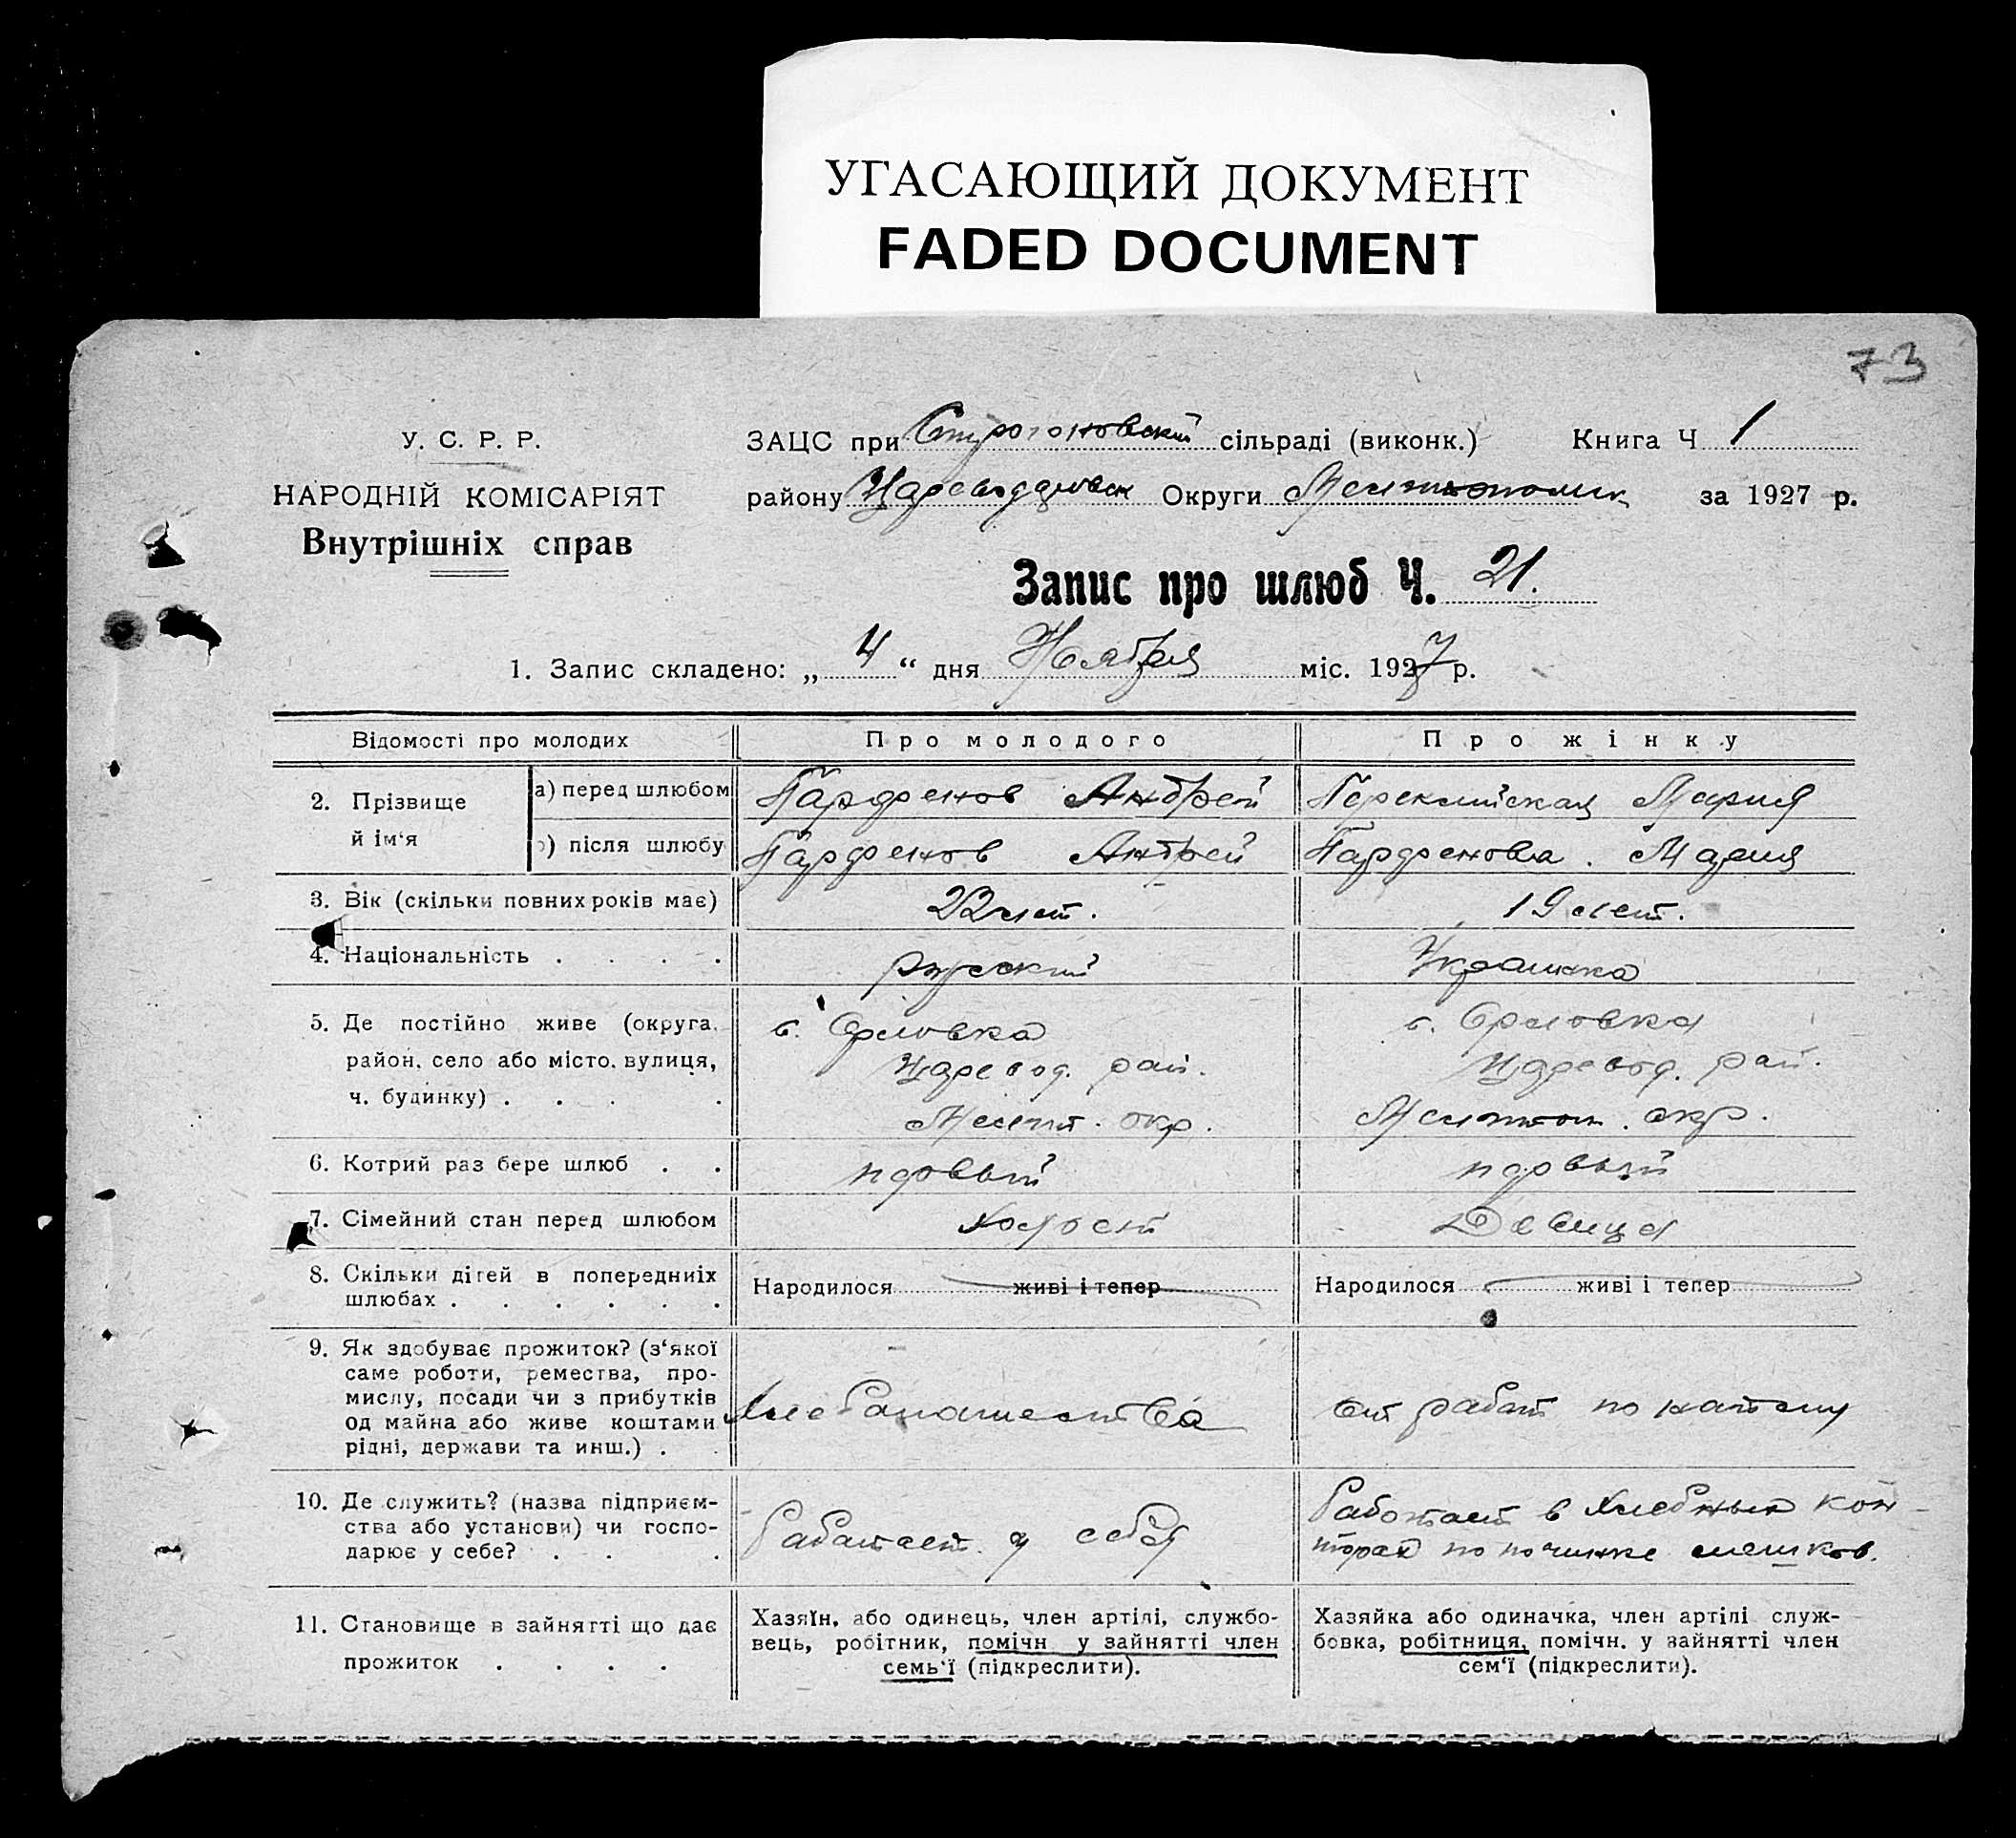 УГАСАЮЩИЙ ДОКУМЕНТ
FADED DOCUMENT
73
У. С. Р. Р.
НАРОДНІЙ КОМІСАРІЯТ
Внутрішніх справ
ЗАЦС при Строгоновский сільраді (виконк.) Книга Ч 1
району Царевод Округи Мелитополик за 1927 р.
Запис про шлюб Ч. 21.
1. Запис складено: „ 4 “ дня Ноября міс. 1927 р.
Відомості про молодих
Про молодого
Про жінку
2. Прізвище й ім‘я
а) перед шлюбом
Парфенов Андрей
Мария
) після шлюбу
Парфенов Андрей
Парфеновка. Мария
3. Вік (скільки повних років має)
22 лет.
19 лет.
4. Національність . . . .
русский
Украинка
5. Де постійно живе (округа,
район, село або місто, вулиця,
ч. будинку) . . . .
с. Орловка
Царевод. рай.
Мелит. окр.
с. Орловка
Царевод. рай.
Мелитоп. окр.
6. Котрий раз бере шлюб . .
первый
первый
7. Сімейний стан перед шлюбом
Холост
Девица
8. Скільки дітей в попередниіх
шлюбах . . . . . .
Народилося живі і тепер
Народилося живі і тепер
9. Як здобуває прожиток? (з‘якої
саме роботи, ремества, про-
мислу, посади чи з прибутків
од майна або живе коштами
рідні, держави та инш.) . .
Хлебапашества
от работ по найому
10. Де служить? (назва підприєм-
ства або установи) чи госпо-
дарює у себе? . . .
Работает у себя
Работает в Хлебных кон-
торах по починке мешков.
11. Становище в зайнятті що дає
прожиток . . . .
Хазяїн, або одинець, член артілі, службо-
вець, робітник, помічн у зайнятті член
семь‘ї (підкреслити).
Хазяйка або одиначка, член артілі служ-
бовка, робітниця, помічн. у зайнятті член
сем‘ї (підкреслити).